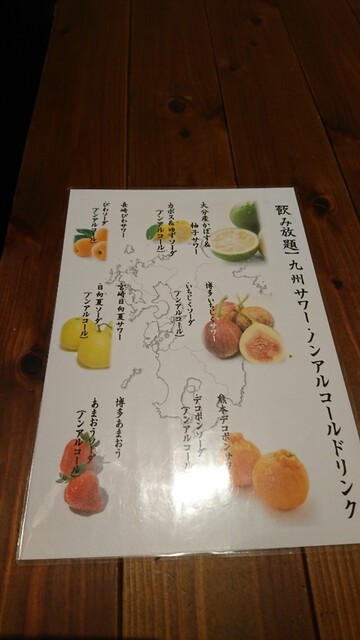 飲み放題 九州サワー・ノンアルコールドリンク
大分産かぼす＆
柚子サワー
カボス＆ゆずソーダ
(ノンアルコール)
長崎びわサワー
びわソーダ
(ノンアルコール)
博多いちじくサワー
いちじくソーダ
(ノンアルコール)
宮崎日向夏サワー
日向夏ソーダ
(ノンアルコール)
熊本デコポンサワー
デコポンソーダ
(ノンアルコール
博多あまおう
あまおうソーダ
(ノンアルコール)